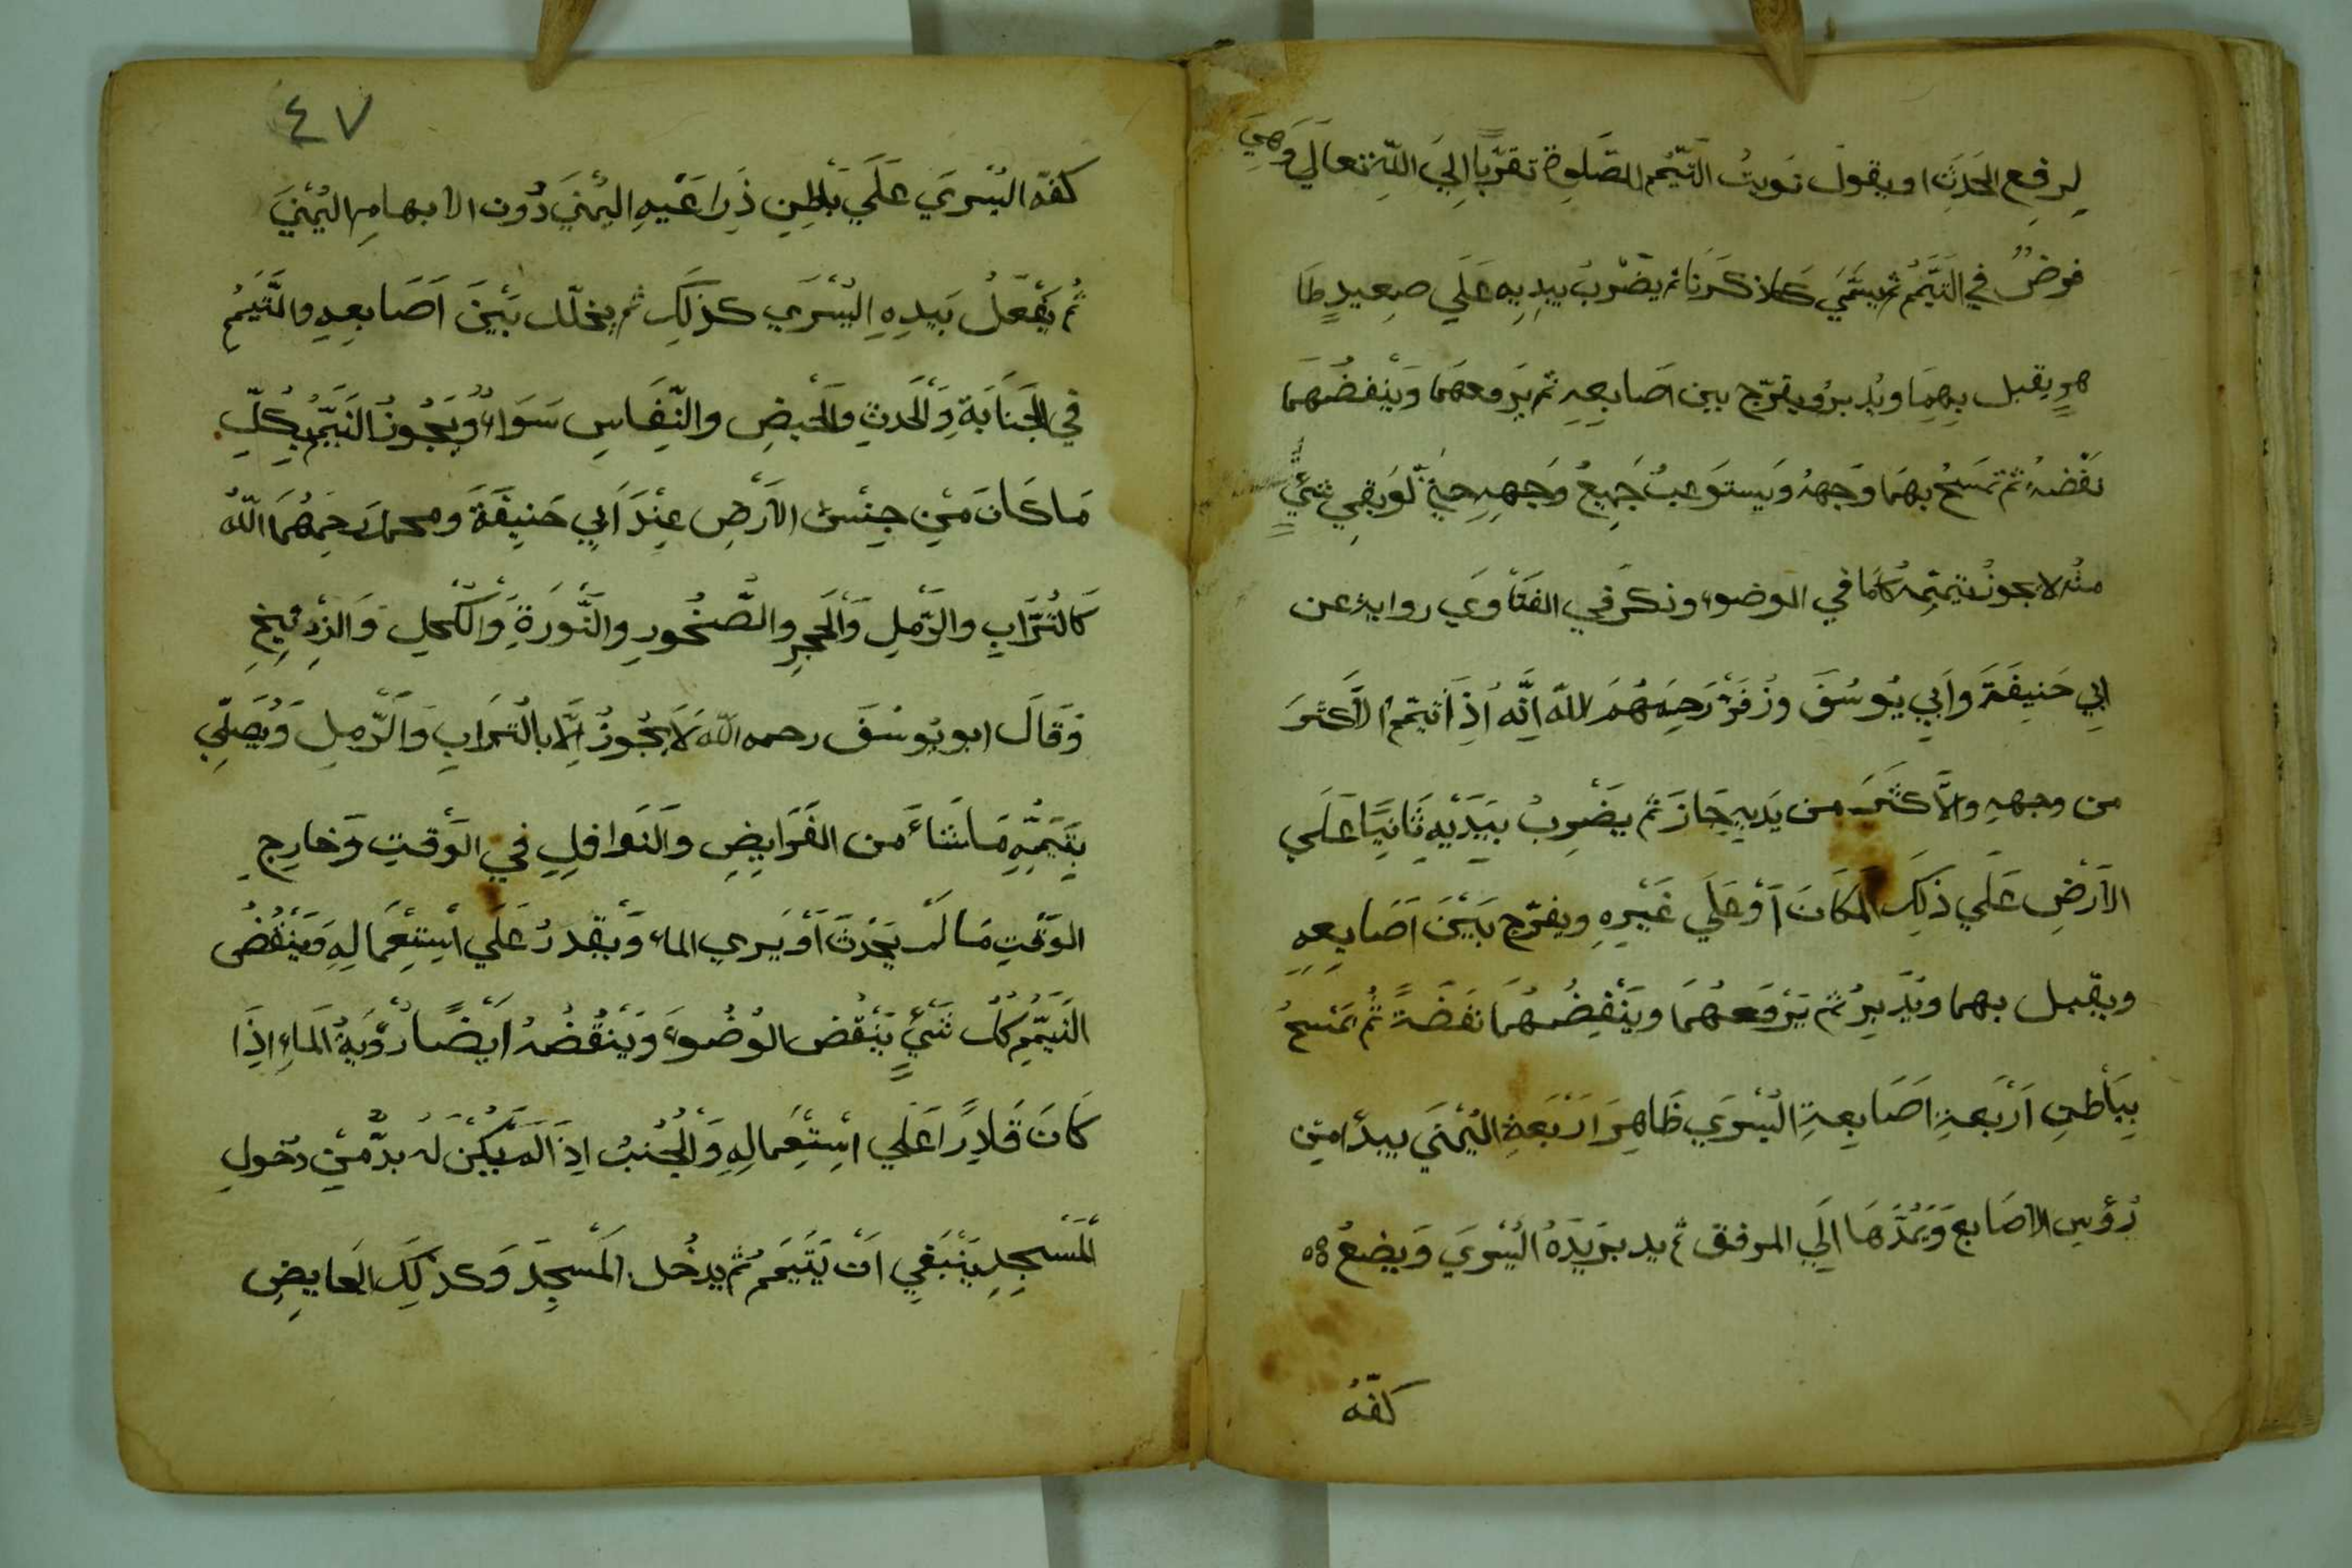 لِرفعِ الحَدَثِ او يقول نَويتُ التّيمّم للصّلوة تقرّبًا اِليَ اللّهِ تعالَي وَهِيَ
فرضٌ في التَيَّمُم ثم يسَمّي كما ذكَرنَا ثم يضْرِبُ بيدِيهِ عَلَي صعيدٍ طَا
هرٍ يقبل بِهِمَا ويُدبرُ ويفرّج بين اصَابعِهِ ثم يَرفعهَما وَيَنْفضُهمَا
نَفْضةً ثم تمسَحُ بِهمَا وَجههُ وَيستَوعبُ جَميعُ وَجهِهِ حتيّ لَوبَقِي شَيٌ
منْه لا يجوزُ تيمّمِهُ كمَا في الوضوء وذكَر في الفتَاوَي رواية عن
ابِي حَنيفَةَ وَاَبِي يُوسُفَ وزُفَرْ رَحِمَهُمَ اللّه اِنَّه اُذِا تيمّم الاَكثَرَ
من وجههِ والاَكثَرَ من يَديهِ جَازَ ثم يضْرِبُ بِيَدَيْهِ ثَانيًا عَلَي
الاَرْضِ عَلَي ذَلِكَ المكَانَ اَوْ عَلَي غَيْرِهِ ويفرّج بَيْنَ اَصَابعِهِ
ويقبل بهما ويُدْبِرُ ثم يَرْفعهُمَا ويَنْفِضُهمَا نَفَضَةً ثُم يَمْسحُ
بِبَاطنِ اَرْبَعةِ اصَابِعهِ اليُسْرَي ظَاهِرَ اَرْبَعَةِ اليُمْنَي يبدَأ مِنْ
رُؤسِ الاصَابعَ وَيَمُدّهَا اِلَي المرفق ثم يدير يَدَهُ اليُسْرَي وَيضعُ
كفّهُ
٤٧
كفّه اليُسْرَي عَلَي بَاطِنِ ذِرَاعَيْهِ اليُمْنَي دُونَ الابهامِ اليُمْنَيَ
ثُم يَفْعَلُ بَيدِهِ اليُسْرَي كذلِكَ ثم يخلّل بَيْنَ اَصَابعِهِ والتَّيَمُم
في الجَنَابَةِ وَالْحَدثِ وَالحَيْضِ والنّفَاسِ سَوَاءٌ وُيَجُوزُ التَيَمّمُ بِكُلّ
مَا كَانَ مَنْ جِنْسِ الاَرْضِ عِنْدَ اَبِي حَنيفَةَ ومحمدٍ رَحِمَهُمَا اللّهُ
كَالتُرَابِ والرَّمْلِ وَالْحَجرِ والصَّخُورِ والنَّورَةِ وَالكُحلِ وَالزِرْنِيخِ
وَقَالَ ابو يُوسُفَ رحمه اللّه لَا يَجُوزُ اِلَّا بالتُرَابِ وَالرَّملِ وَيُصَلّي
بتَيَمّمِهِ مَا شَاءَ من الفَرَايضِ والنَوافلِ في الوَقتِ وَخَارِج
الوَقْتِ مَا لَمْ يَحْدَثْ اَوْ يَرى الماء وَيَقدرُ عَلَي اسْتِعْمَالِهِ وَيَنْقُضُ
التَيمّم كُلّ شَيْءٍ يَنْقض الوُضُوء وَيَنقُضُهُ اَيْضًا رُؤْيَةُ المَاءِ اِذَا
كَانَ قَادِرًا عَلَي اسْتِعْمالِهِ وَالْجُنبُ اِذَا لَمْ يَكُنْ لَهُ بدٌّ مّنْ دُخولِ
المَسْجِدِ يَنْبَغي اَنْ يَتَيمّم ثم يدخُل المَسْجِدَ وَكذلِكَ الحايضِ